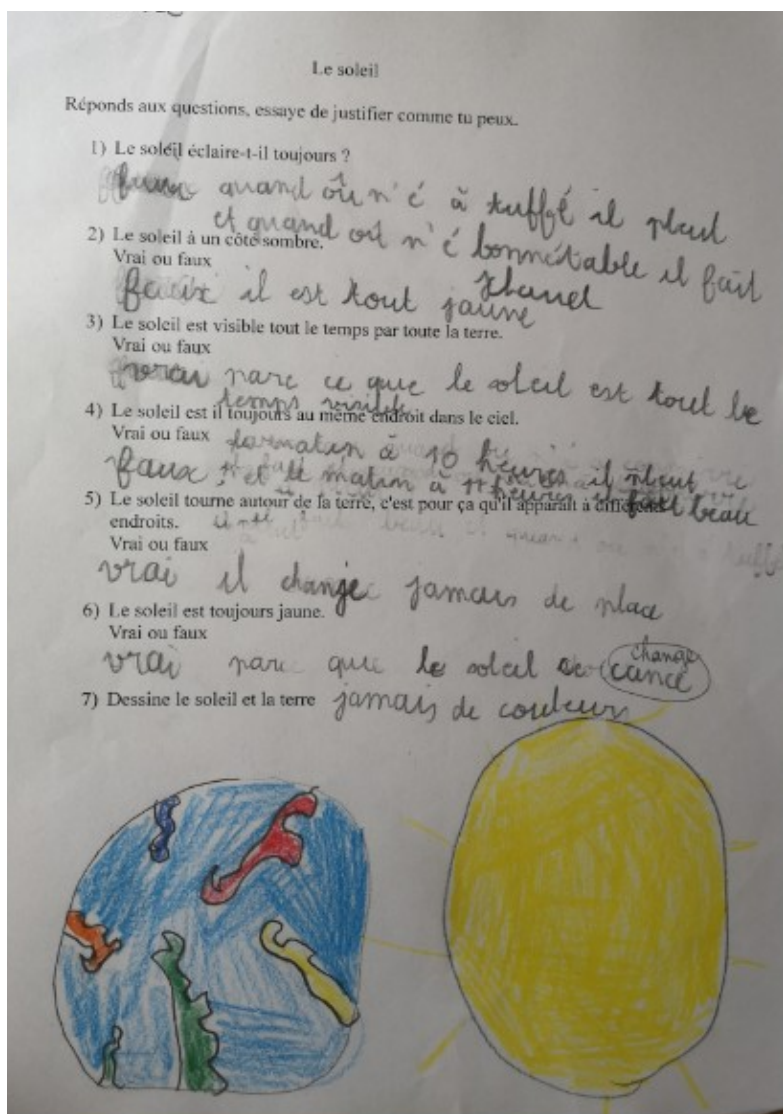 Le soleil
Réponds aux questions, essaye de justifier comme tu peux.
1) Le soleil éclaire-t-il toujours ?
faux quand où n'é à tuffé il pleut
et quand où n'é bonnétable il fait
2) Le soleil à un côté sombre.
Vrai ou faux
faux il est tout jaune
3) Le soleil est visible tout le temps par toute la terre.
Vrai ou faux
vrai parc ce que le soleil est tout le
temps visible
4) Le soleil est il toujours au même endroit dans le ciel.
Vrai ou faux matin à 10 heures il pleut
faux et le matin à 11 heures il fait beau
5) Le soleil tourne autour de la terre, c'est pour ça qu'il apparaît à différents
endroits.
Vrai ou faux
vrai il change jamais de place
6) Le soleil est toujours jaune.
Vrai ou faux
change
vrai parc que le soleil cance
7) Dessine le soleil et la terre jamais de couleurs